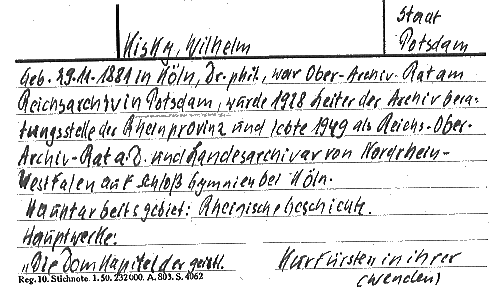 Stadt
Kisky, Wilhelm
Potsdam
Geb. 29.11.1881 in Köln, Dr. phil., war Ober-Archiv-Rat am
Reichsarchiv in Potsdam, wurde 1928 Leiter der Archivbera-
tungsstelle der Rheinprovinz und lebte 1949 als Reichs-Ober-
Archiv-Rat a.D. und Landesarchivar von Nordrhein-
Westfalen auf Schloß Gymnien bei Köln.
Hauptarbeitsgebiet: Rheinische Geschichte.
Hauptwerke:
„Die Domkapitel der geistl. Kurfürsten in ihrer
(wenden)
Reg. 10. Stichnote. 1. 50. 232000. A. 803. S. 4062